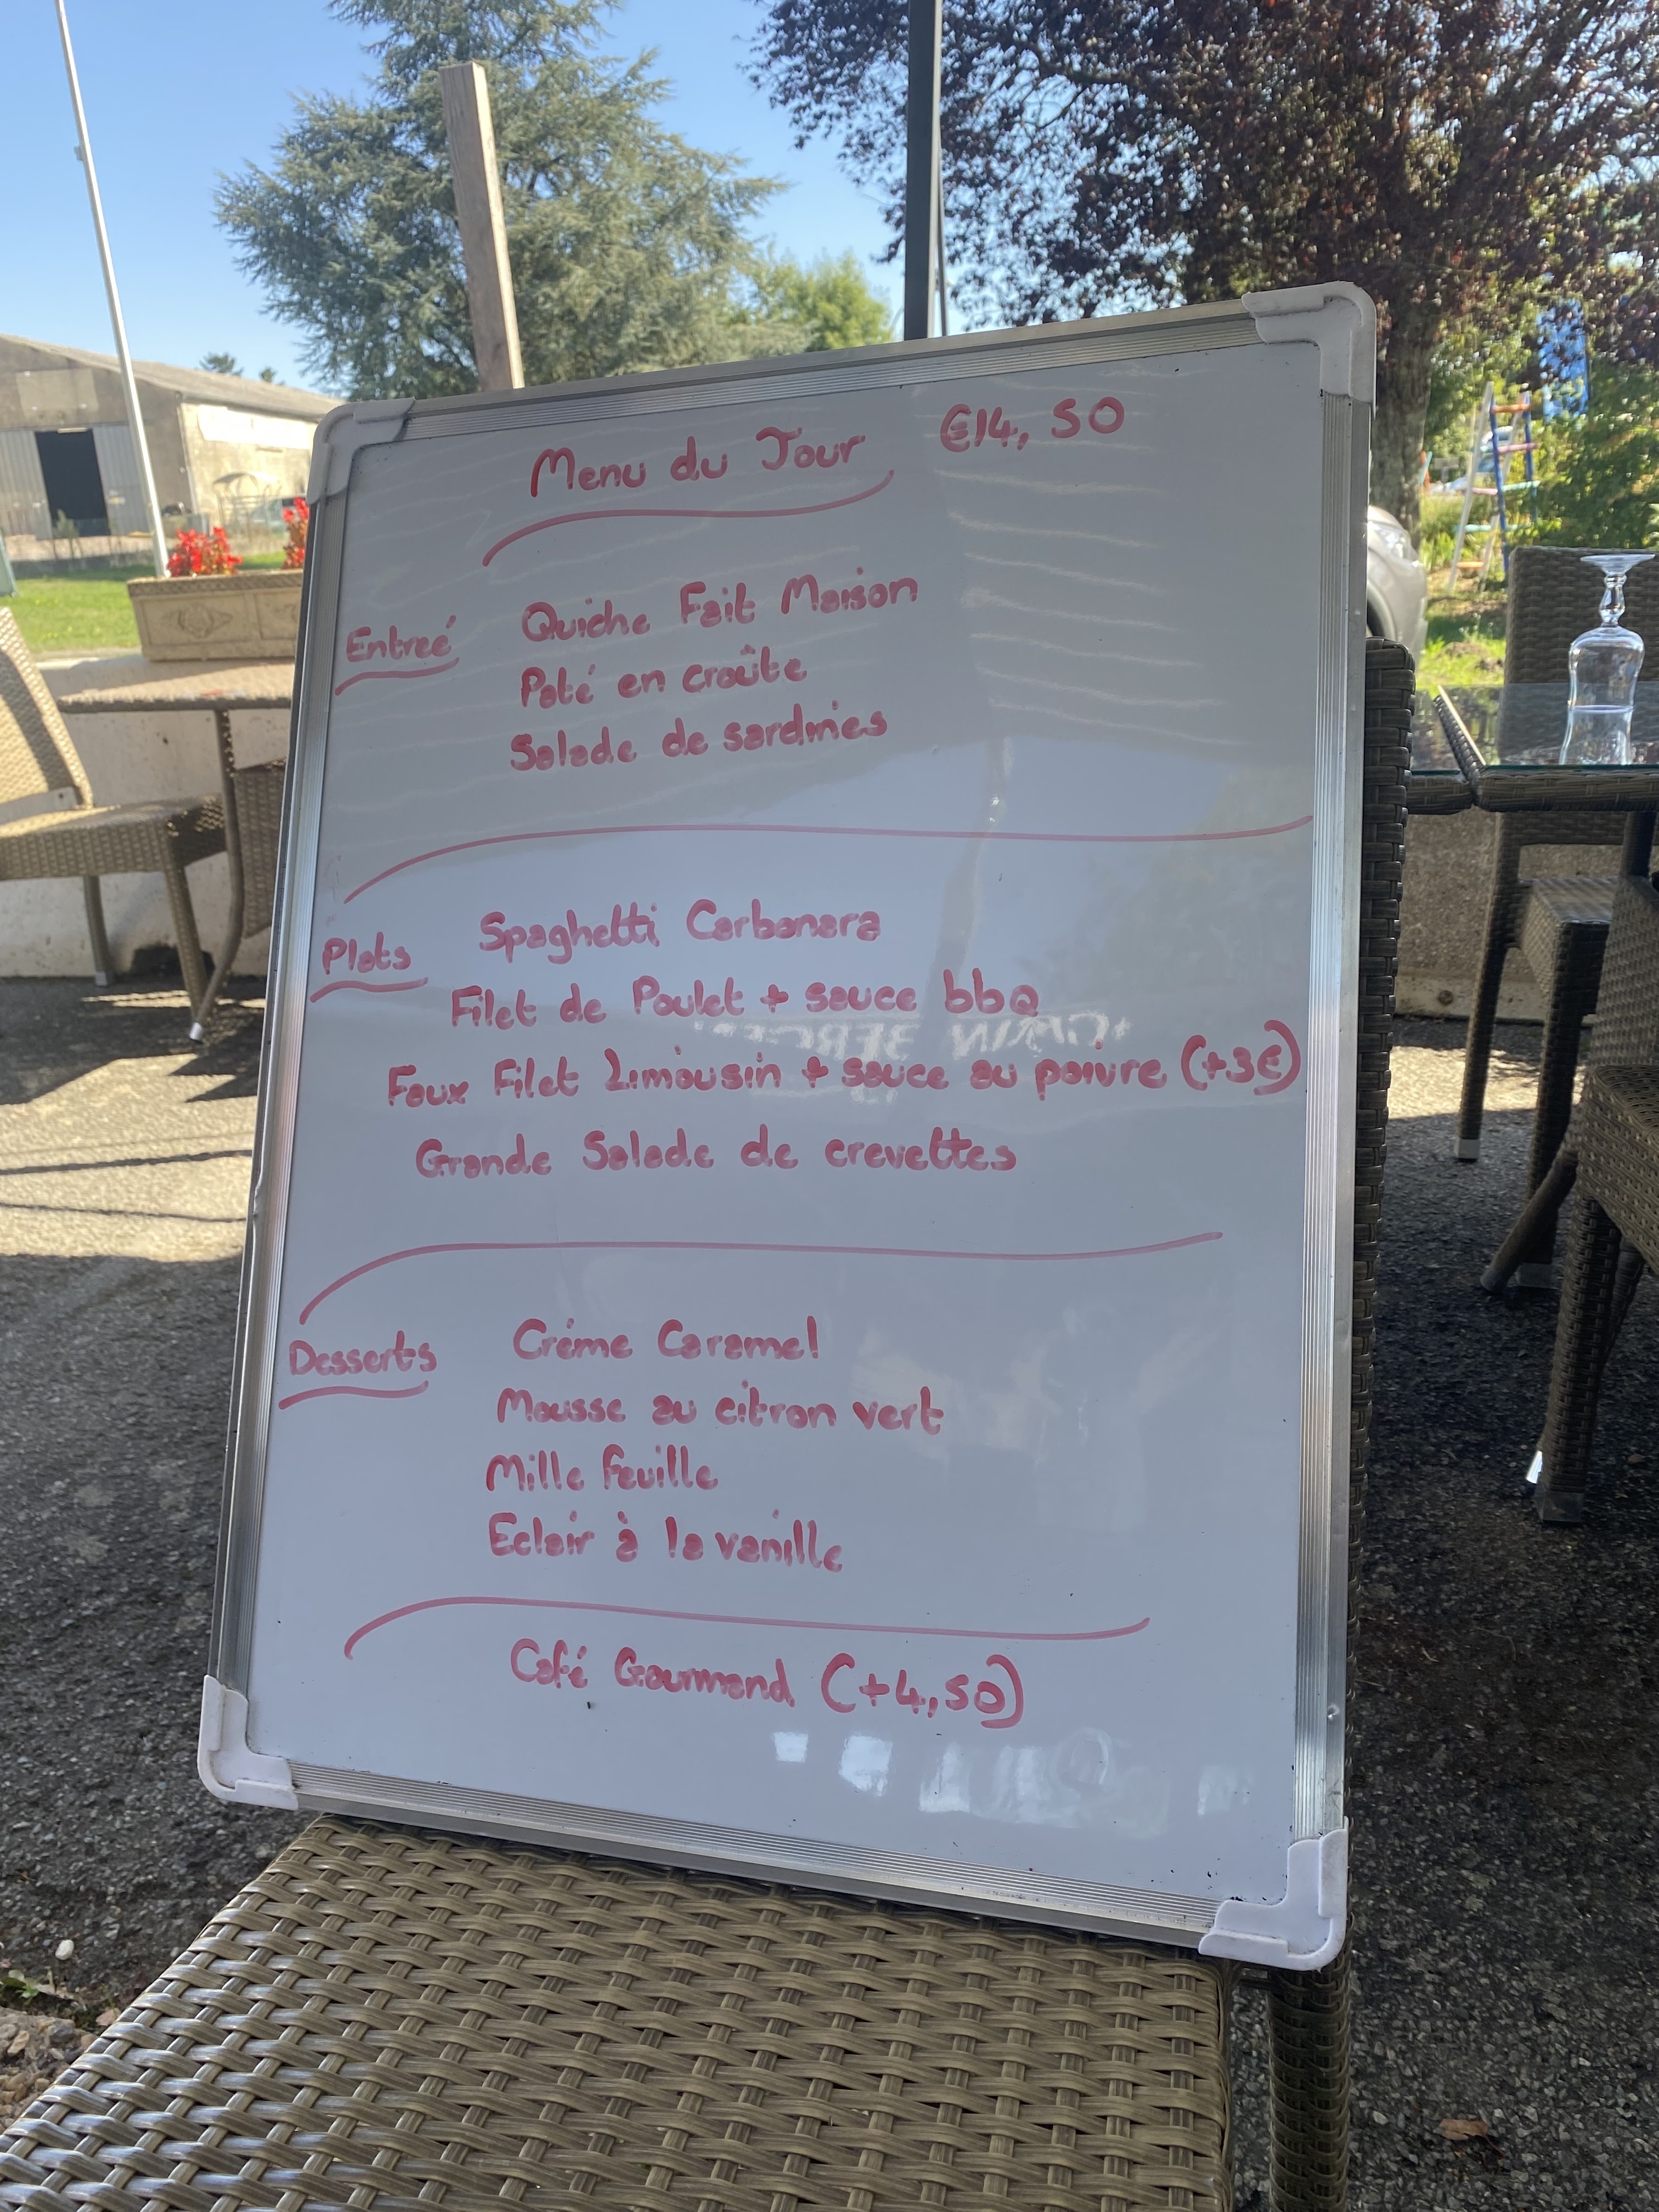 Menu du Jour €14,50
Entreé
Quiche Fait Maison
Paté en croûte
Salade de sardines
Plats
Spaghetti Carbonara
Filet de Poulet + sauce bbq
Faux Filet Limousin + sauce au poivre (+3€)
Grande Salade de crevettes
Desserts
Créme Caramel
Mousse au citron vert
Mille feuille
Eclair à la vanille
Café Gourmand (+4,50)